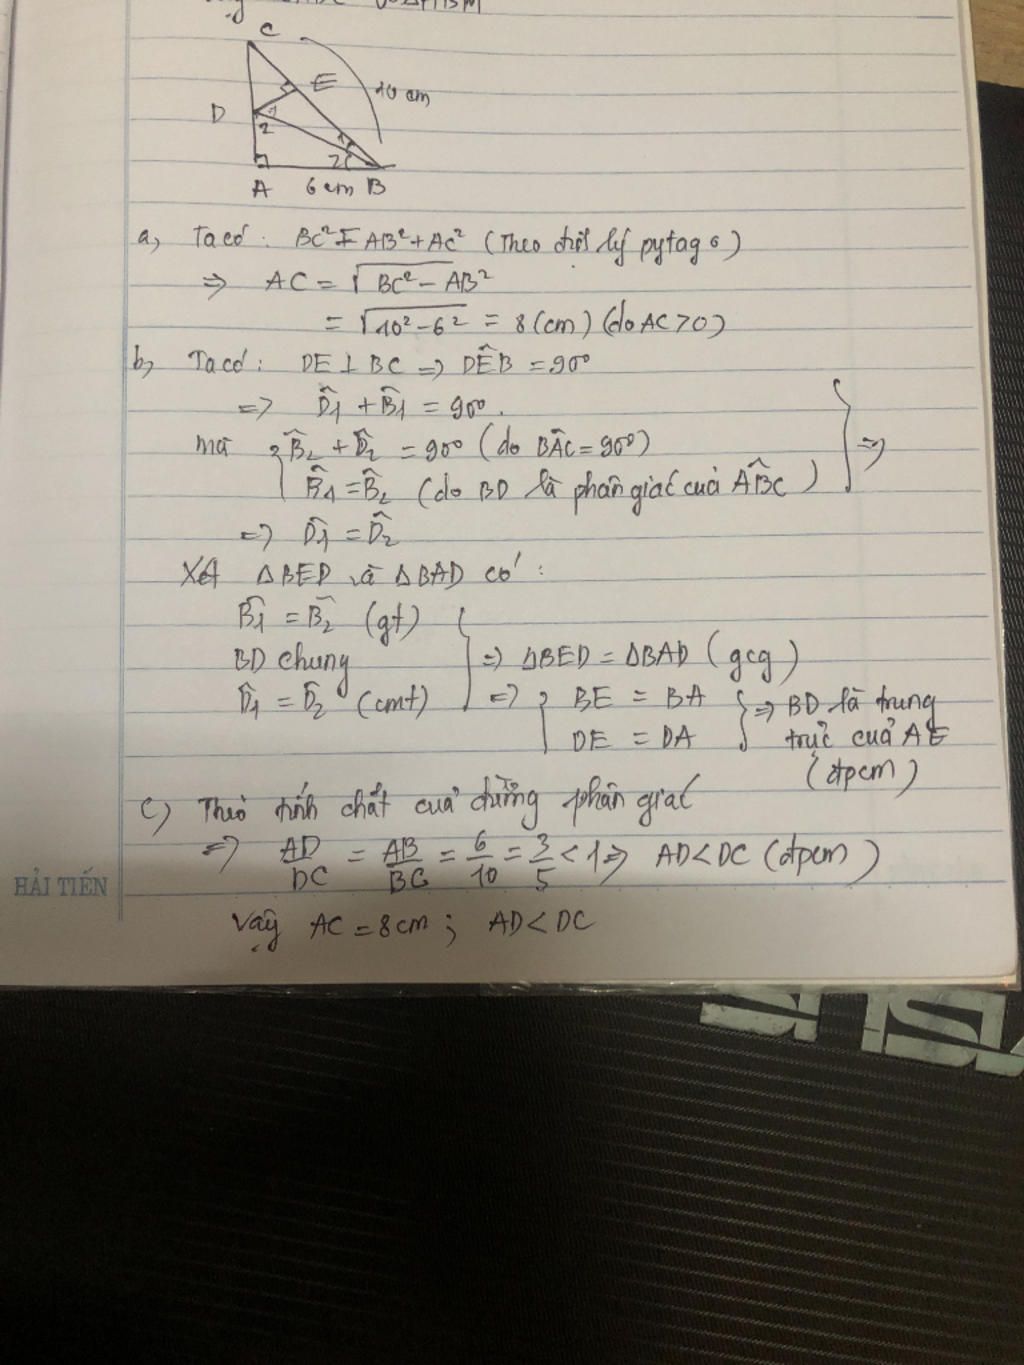 C
E
10 cm
D
1
2
1
2
A 6 cm B
a, Ta có : BC² = AB² + AC² (Theo định lý pytago)
⇒ AC = √BC² − AB²
= √10² − 6² = 8 (cm) (do AC > 0)
b, Ta có : DE ⊥ BC ⇒ DÊB = 90°
⇒ D̂1 + B̂1 = 90°.
mà { B̂2 + D̂2 = 90° (do BÂC = 90°) } ⇒
B̂1 = B̂2 (do BD là phân giác của AB̂C)
⇒ D̂1 = D̂2
Xét ΔBED và ΔBAD có :
B̂1 = B̂2 (gt)
BD chung } ⇒ ΔBED = ΔBAD (gcg)
D̂1 = D̂2 (cmt) ⇒ { BE = BA } ⇒ BD là trung
DE = DA trực của AE
(đpcm)
c) Theo tính chất của đường phân giác
⇒ AD/DC = AB/BC = 6/10 = 3/5 < 1 ⇒ AD < DC (đpcm)
HẢI TIẾN
Vậy AC = 8 cm ; AD < DC